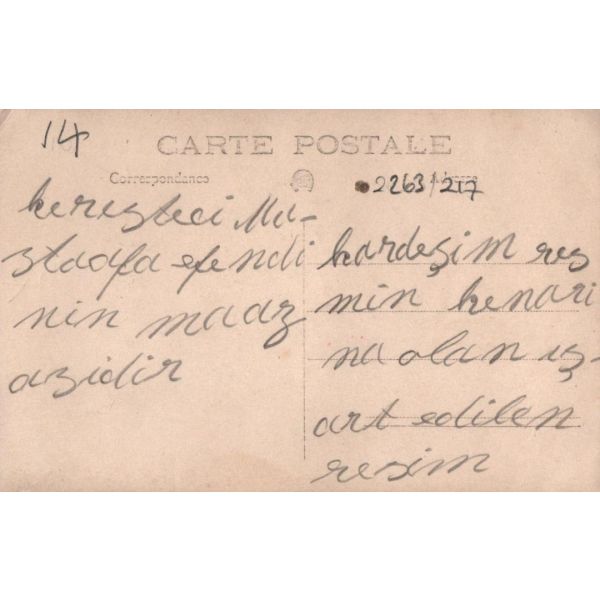 14
CARTE POSTALE
Correspondance
Adresse
2263/217
keresteci Mu-
staafa efendi
nin maaz
azidir
kardeşim res
min kenari
na olan iş-
art edilen
resim